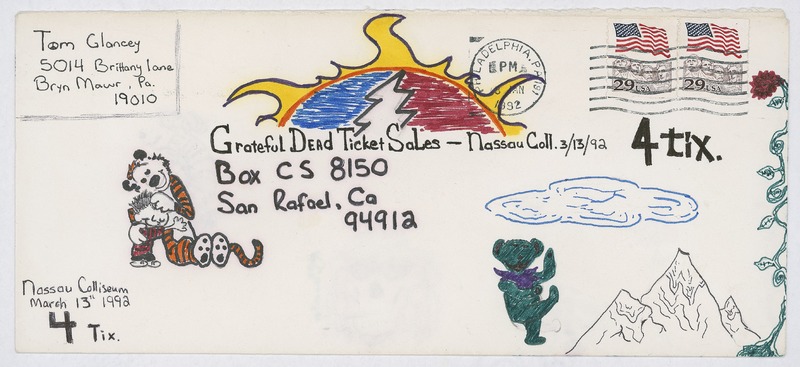 Tom Clancey
5014 Brittany Lane
Bryn Mawr, Pa.
19010
PHILADELPHIA, PA 191
PM
JAN
1992
29 USA
29 USA
Grateful DEAD Ticket SaLes – Nassau Coll. 3/13/92
4 tix.
Box CS 8150
San Rafael, Ca
94912
Nassau Colliseum
March 13th 1992
4 Tix.